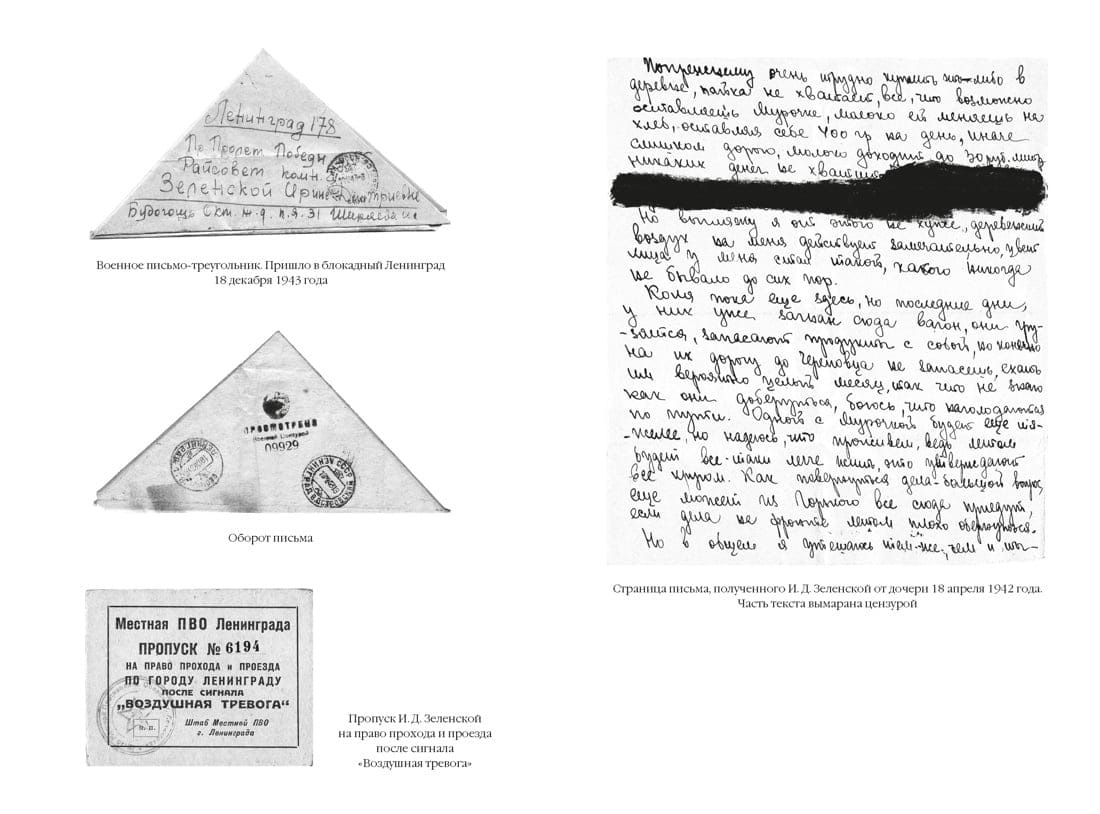 Ленинград 178
По Пролет. Победы
Райсовет комн. 9
Зеленской Ирине
Будогощь Окт. ж.д. п.я. 31
Военное письмо-треугольник. Пришло в блокадный Ленинград
18 декабря 1943 года
ПРОСМОТРЕНО
Военной Цензурой
09929
Оборот письма
Местная ПВО Ленинграда
ПРОПУСК № 6194
НА ПРАВО ПРОХОДА и ПРОЕЗДА
ПО ГОРОДУ ЛЕНИНГРАДУ
ПОСЛЕ СИГНАЛА
„ВОЗДУШНАЯ ТРЕВОГА“
Штаб Местной ПВО
г. Ленинграда
Пропуск И. Д. Зеленской
на право прохода и проезда
после сигнала
«Воздушная тревога»
Попрежнему очень трудно купить что-либо в
деревне, пайка не хватает, все, что возможно
оставляешь Мурочке, молоко ей меняешь на
хлеб, оставляя себе 400 гр на день, иначе
слишком дорого, молоко доходит до 30 руб. литр,
никаких денег не хватит
Но выгляжу я от этого не хуже, деревенский
воздух на меня действует замечательно, цвет
лица у меня стал такой, какого никогда
не бывало до сих пор.
Коля пока еще здесь, но последние дни,
у них уже загнан сюда вагон, они гру-
-зятся, запасают продукты с собой, но конечно
на их дорогу до Череповца не запасешь, ехать
им вероятно целый месяц, так что не знаю
как они доберутся, боюсь, что наголодаются
по пути. Одной с Мурочкой будет еще тя-
-желее, но надеюсь, что проживем, ведь летом
будет все-таки легче жить, это утверждают
все кругом. Как повернутся дела-большой вопрос,
еще может из все сюда приедут,
если дела на фронте летом плохо обернутся.
Но в общем я утешаюсь тем-же, чем и
Страница письма, полученного И. Д. Зеленской от дочери 18 апреля 1942 года.
Часть текста вымарана цензурой